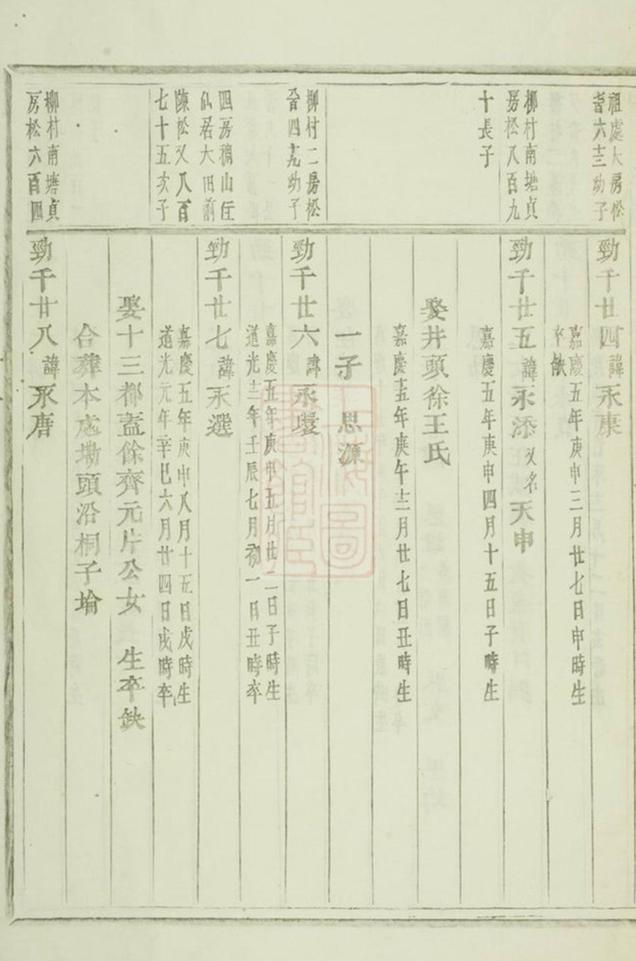 祖處大房松
晉六十三幼子
勁千廿四諱永康
嘉慶五年庚申三月廿七日申時生
卒缺
柳村南塘貞
房松八百九
十長子
勁千廿五諱永添又名天申
嘉慶五年庚申四月十五日子時生
娶井頭徐王氏
嘉慶十五年庚午十二月廿七日丑時生
一子 思源
柳村二房松
晉四十九幼子
勁千廿六諱永瓊
嘉慶五年庚申五月廿二日子時生
道光十二年壬辰七月初一日丑時卒
四房稠山任
仙居大田前
陳松又八百
七十五次子
勁千廿七諱永選
嘉慶五年庚申八月十五日戌時生
道光元年辛巳六月廿四日戌時卒
娶十三都蓋餘齊元片公女 生卒缺
合葬本處塝頭沿桐子堬
柳村南塘貞
房松六百四
勁千廿八諱永唐